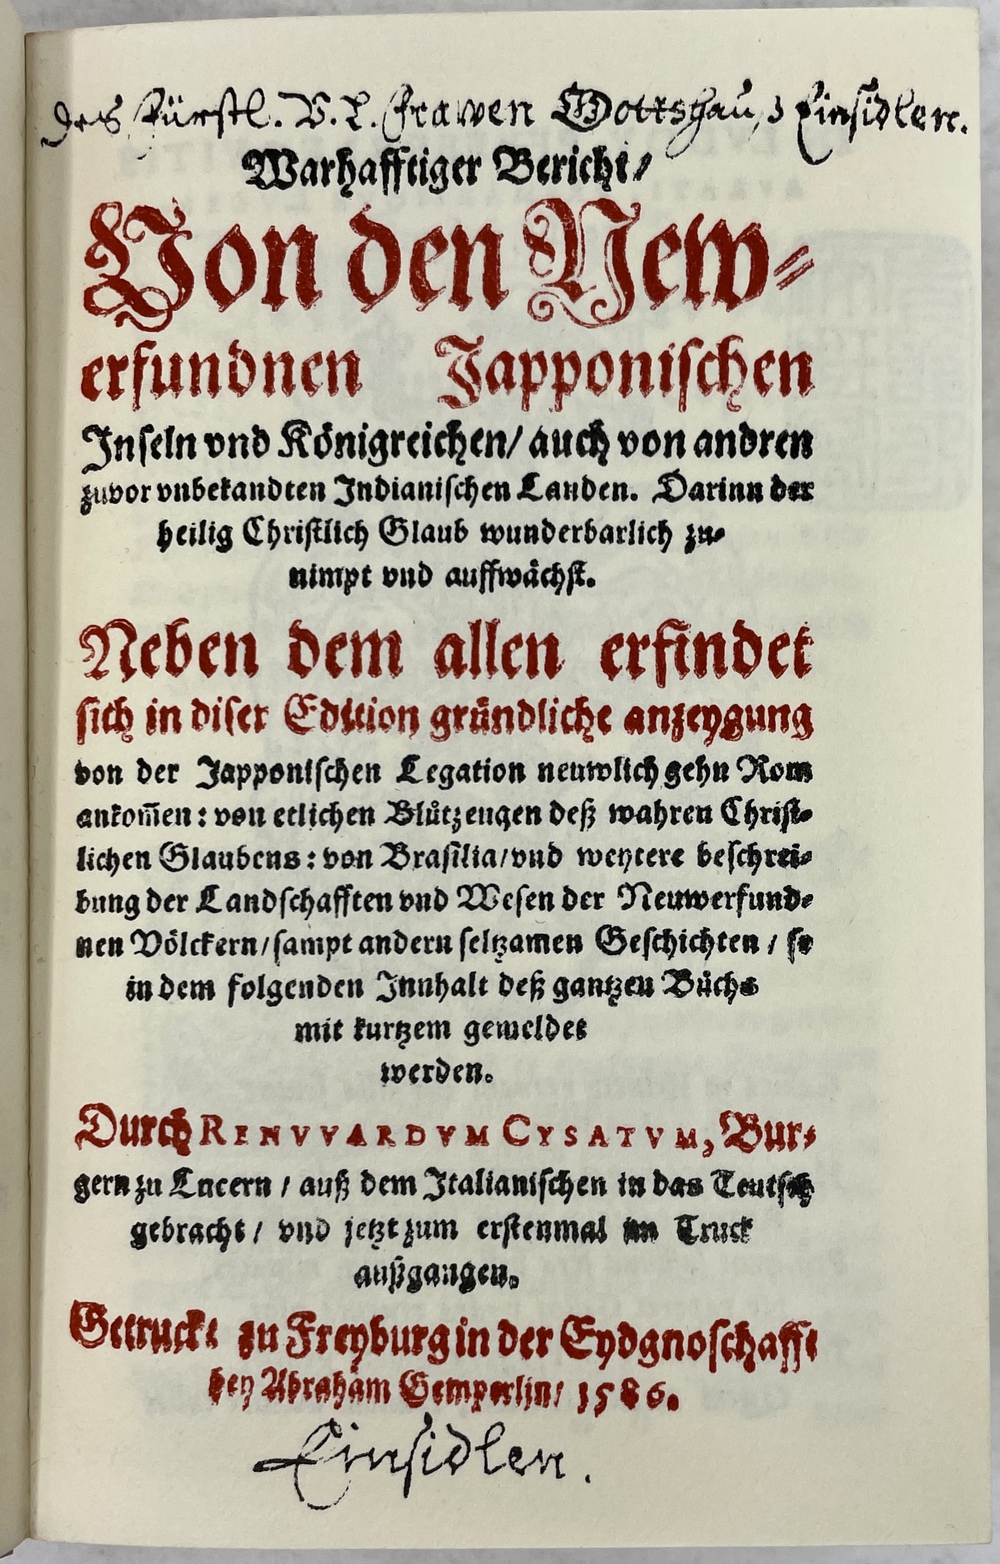 Des Fürstl. V. L. Frawen Gottshaus Einsidlen.
Warhafftiger Bericht/
Von den New⸗
erfundnen Japponischen
Inseln vnd Königreichen/ auch von andren
zuvor vnbekandten Indianischen Landen. Darinn der
heilig Christlich Glaub wunderbarlich zu⸗
nimpt vnd auffwächst.
Neben dem allen erfindet
sich in diser Edition gründliche anzeygung
von der Japponischen Legation neuwlich gehn Rom
ankom̅en: von etlichen Blůtzeugen deß wahren Christ⸗
lichen Glaubens: von Brasilia/ vnd weytere beschrei⸗
bung der Landschafften vnd Wesen der Neuwerfund⸗
nen Völckern/ sampt andern seltzamen Geschichten / so
in dem folgenden Innhalt deß gantzen Bůchs
mit kurtzem gemeldet
werden.
Durch RENVVARDVM CYSATVM, Bur⸗
gern zu Lucern / auß dem Italianischen in das Teutsch
gebracht/ vnd jetzt zum erstenmal im Truck
außgangen.
Getruckt zu Freyburg in der Eydgnoschafft
bey Abraham Gemperlin/ 1586.
Einsidlen.